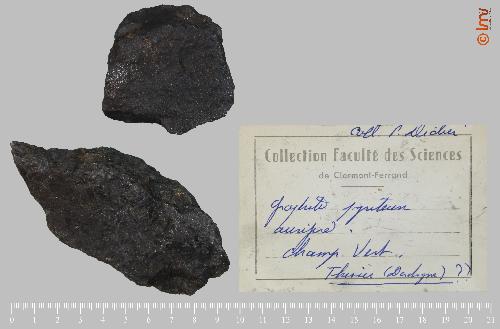 © lmv
Coll. P. Didier
Collection Faculté des Sciences
de Clermont-Ferrand
graphite pyriteux
aurifère.
Champ Vert.
Thiviers (Dordogne) ??
0 1 2 3 4 5 6 7 8 9 10 11 12 13 14 15 16 17 18 19 20 21